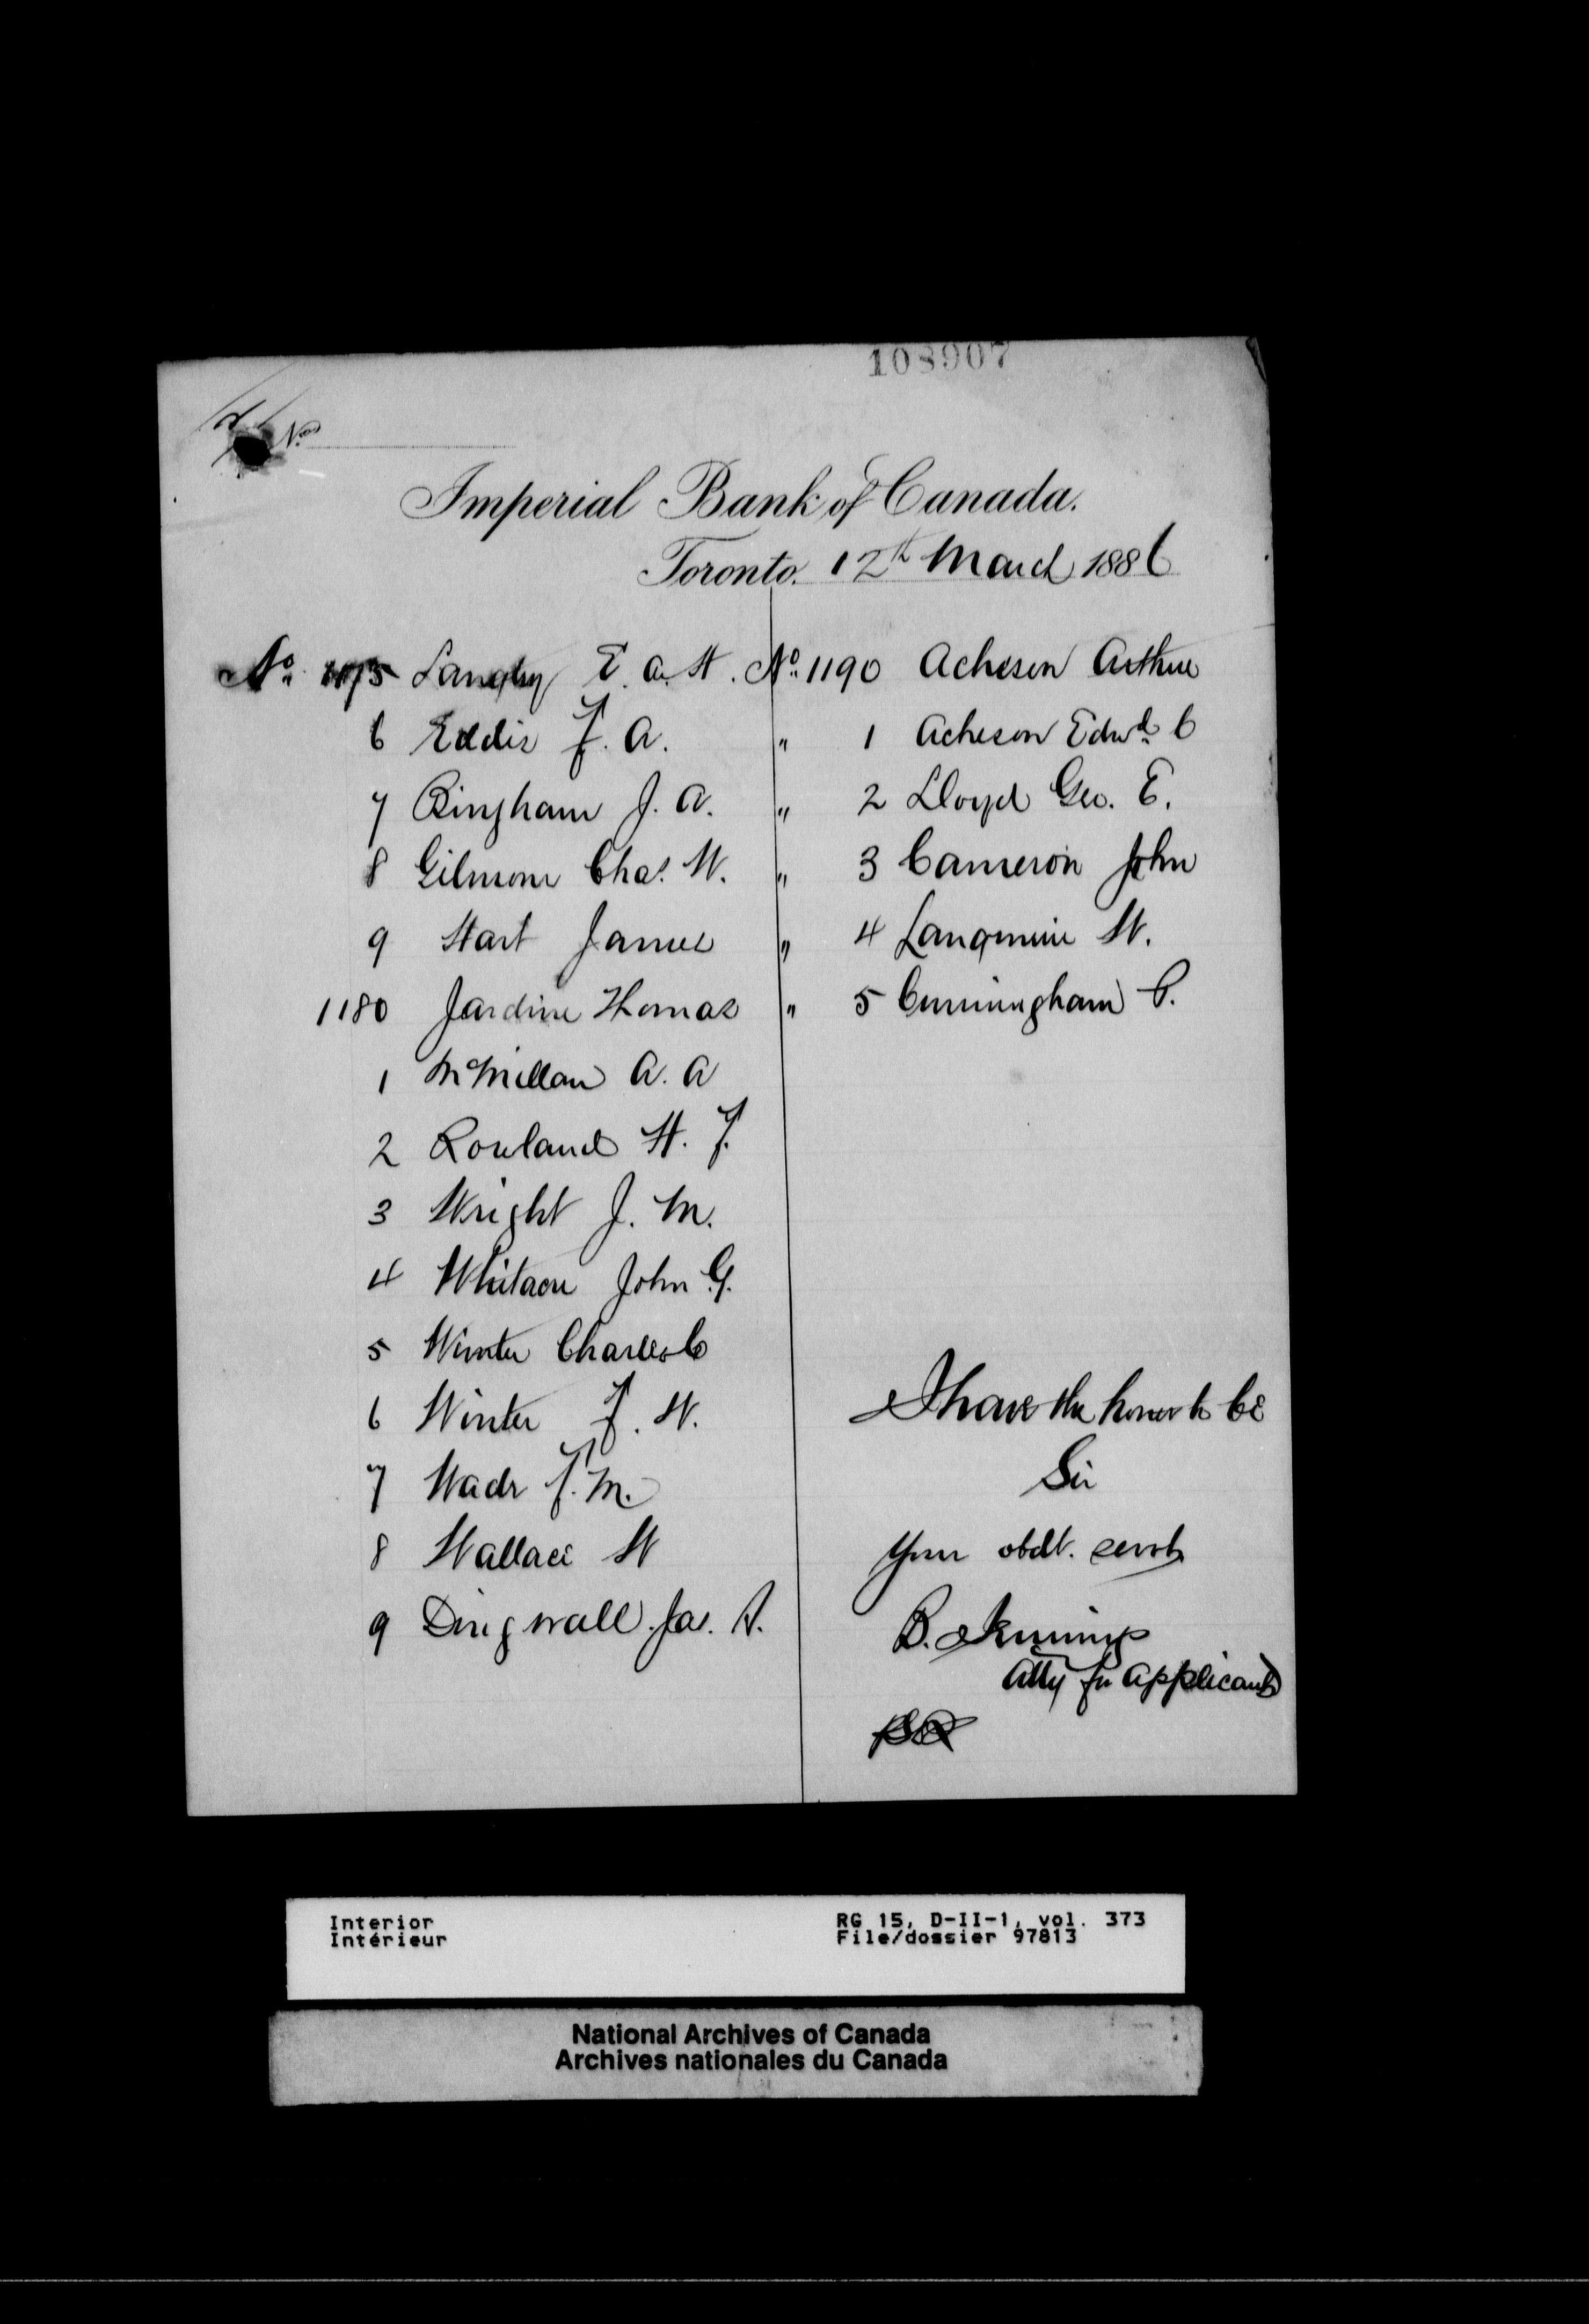 108907
No
Imperial Bank of Canada.
Toronto. 12th March 1886
No. 1175 Langley E. A. H.
6 Eddis F. A.
7 Bingham J. A.
8 Gilmour Chas. W.
9 Hart James
1180 Jardine Thomas
1 McMillan A. A
2 Rowland H. F.
3 Wright J. M.
4 John G.
5 Winter Charles C
6 Winter F. W.
7 Wade F. M.
8 Wallace W
9 Dingwall Jas. A.
No. 1190 Acheson Arthur
" 1 Acheson Edwd. C
" 2 Lloyd Geo. E.
" 3 Cameron John
" 4 W.
" 5 Cunningham P.
I have the honor to be
Sir
Your obdt. servt
B. Jennings
Atty for Applicants
Interior
Intérieur
RG 15, D-II-1, vol. 373
File/dossier 97813
National Archives of Canada
Archives nationales du Canada